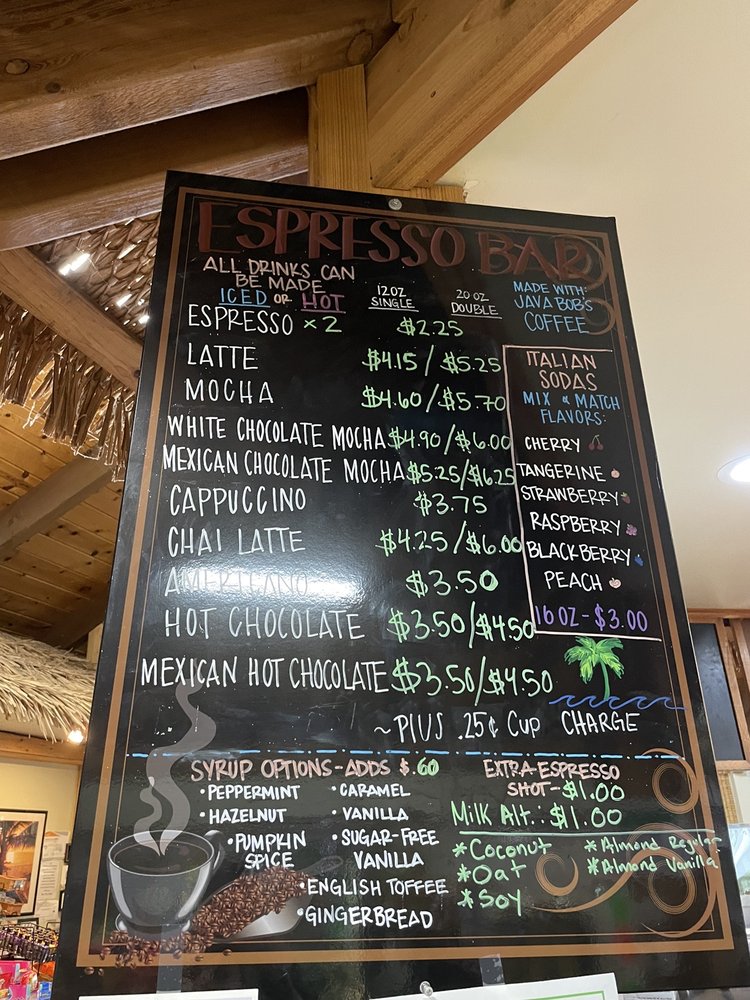 ESPRESSO BAR
ALL DRINKS CAN
BE MADE
ICED OR HOT
12OZ SINGLE
20 OZ DOUBLE
MADE WITH:
JAVA BOB'S
COFFEE
ESPRESSO x 2 $2.25
LATTE $4.15 / $5.25
MOCHA $4.60/$5.70
WHITE CHOCOLATE MOCHA $4.90/$6.00
MEXICAN CHOCOLATE MOCHA $5.25/$6.25
CAPPUCCINO $3.75
CHAI LATTE $4.25/$6.00
AMERICANO $3.50
HOT CHOCOLATE $3.50/$4.50
MEXICAN HOT CHOCOLATE $3.50/$4.50
~PLUS .25¢ CUP CHARGE
ITALIAN
SODAS
MIX & MATCH
FLAVORS:
CHERRY
TANGERINE
STRAWBERRY
RASPBERRY
BLACKBERRY
PEACH
16 OZ - $3.00
SYRUP OPTIONS-ADDS $.60
• PEPPERMINT
• HAZELNUT
• PUMPKIN
SPICE
• CARAMEL
• VANILLA
• SUGAR-FREE
VANILLA
• ENGLISH TOFFEE
• GINGERBREAD
EXTRA ESPRESSO
SHOT-$1.00
Milk Alt.: $1.00
*Coconut
*Oat
*Soy
*Almond Regular
*Almond Vanilla